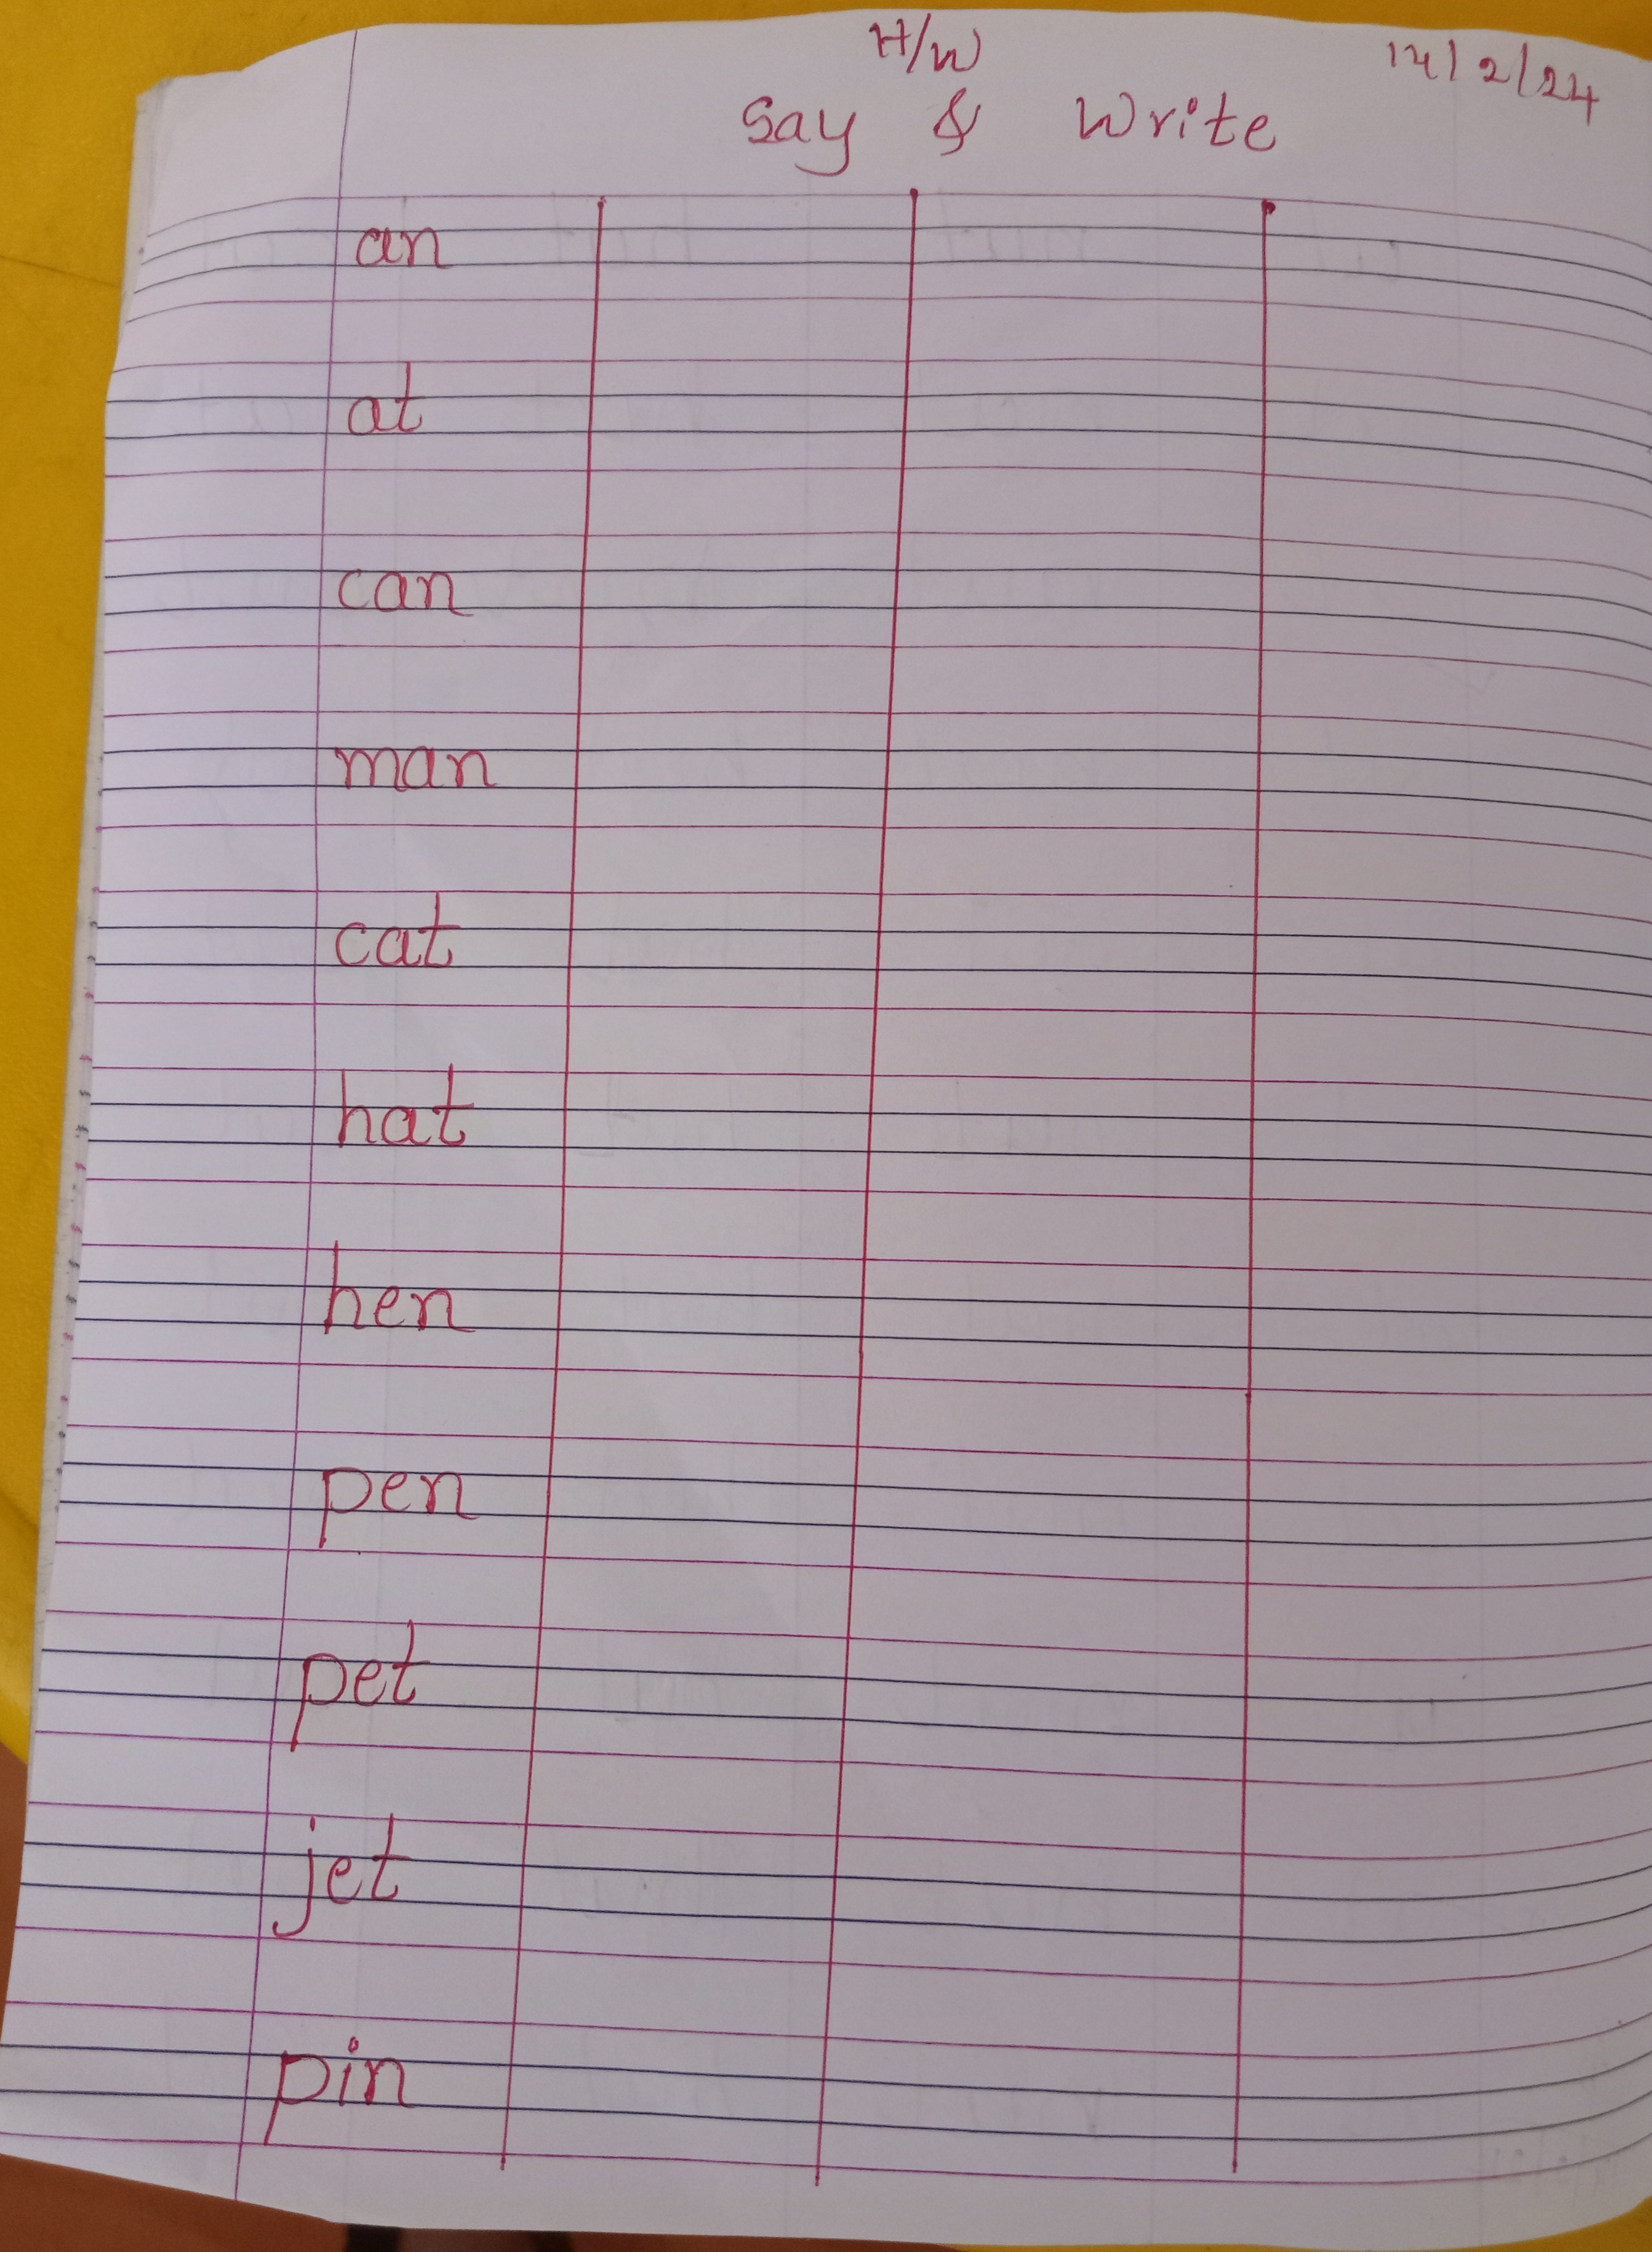 H/W 14/2/24
Say & Write
an
at
can
man
cat
hat
hen
pen
pet
jet
pin